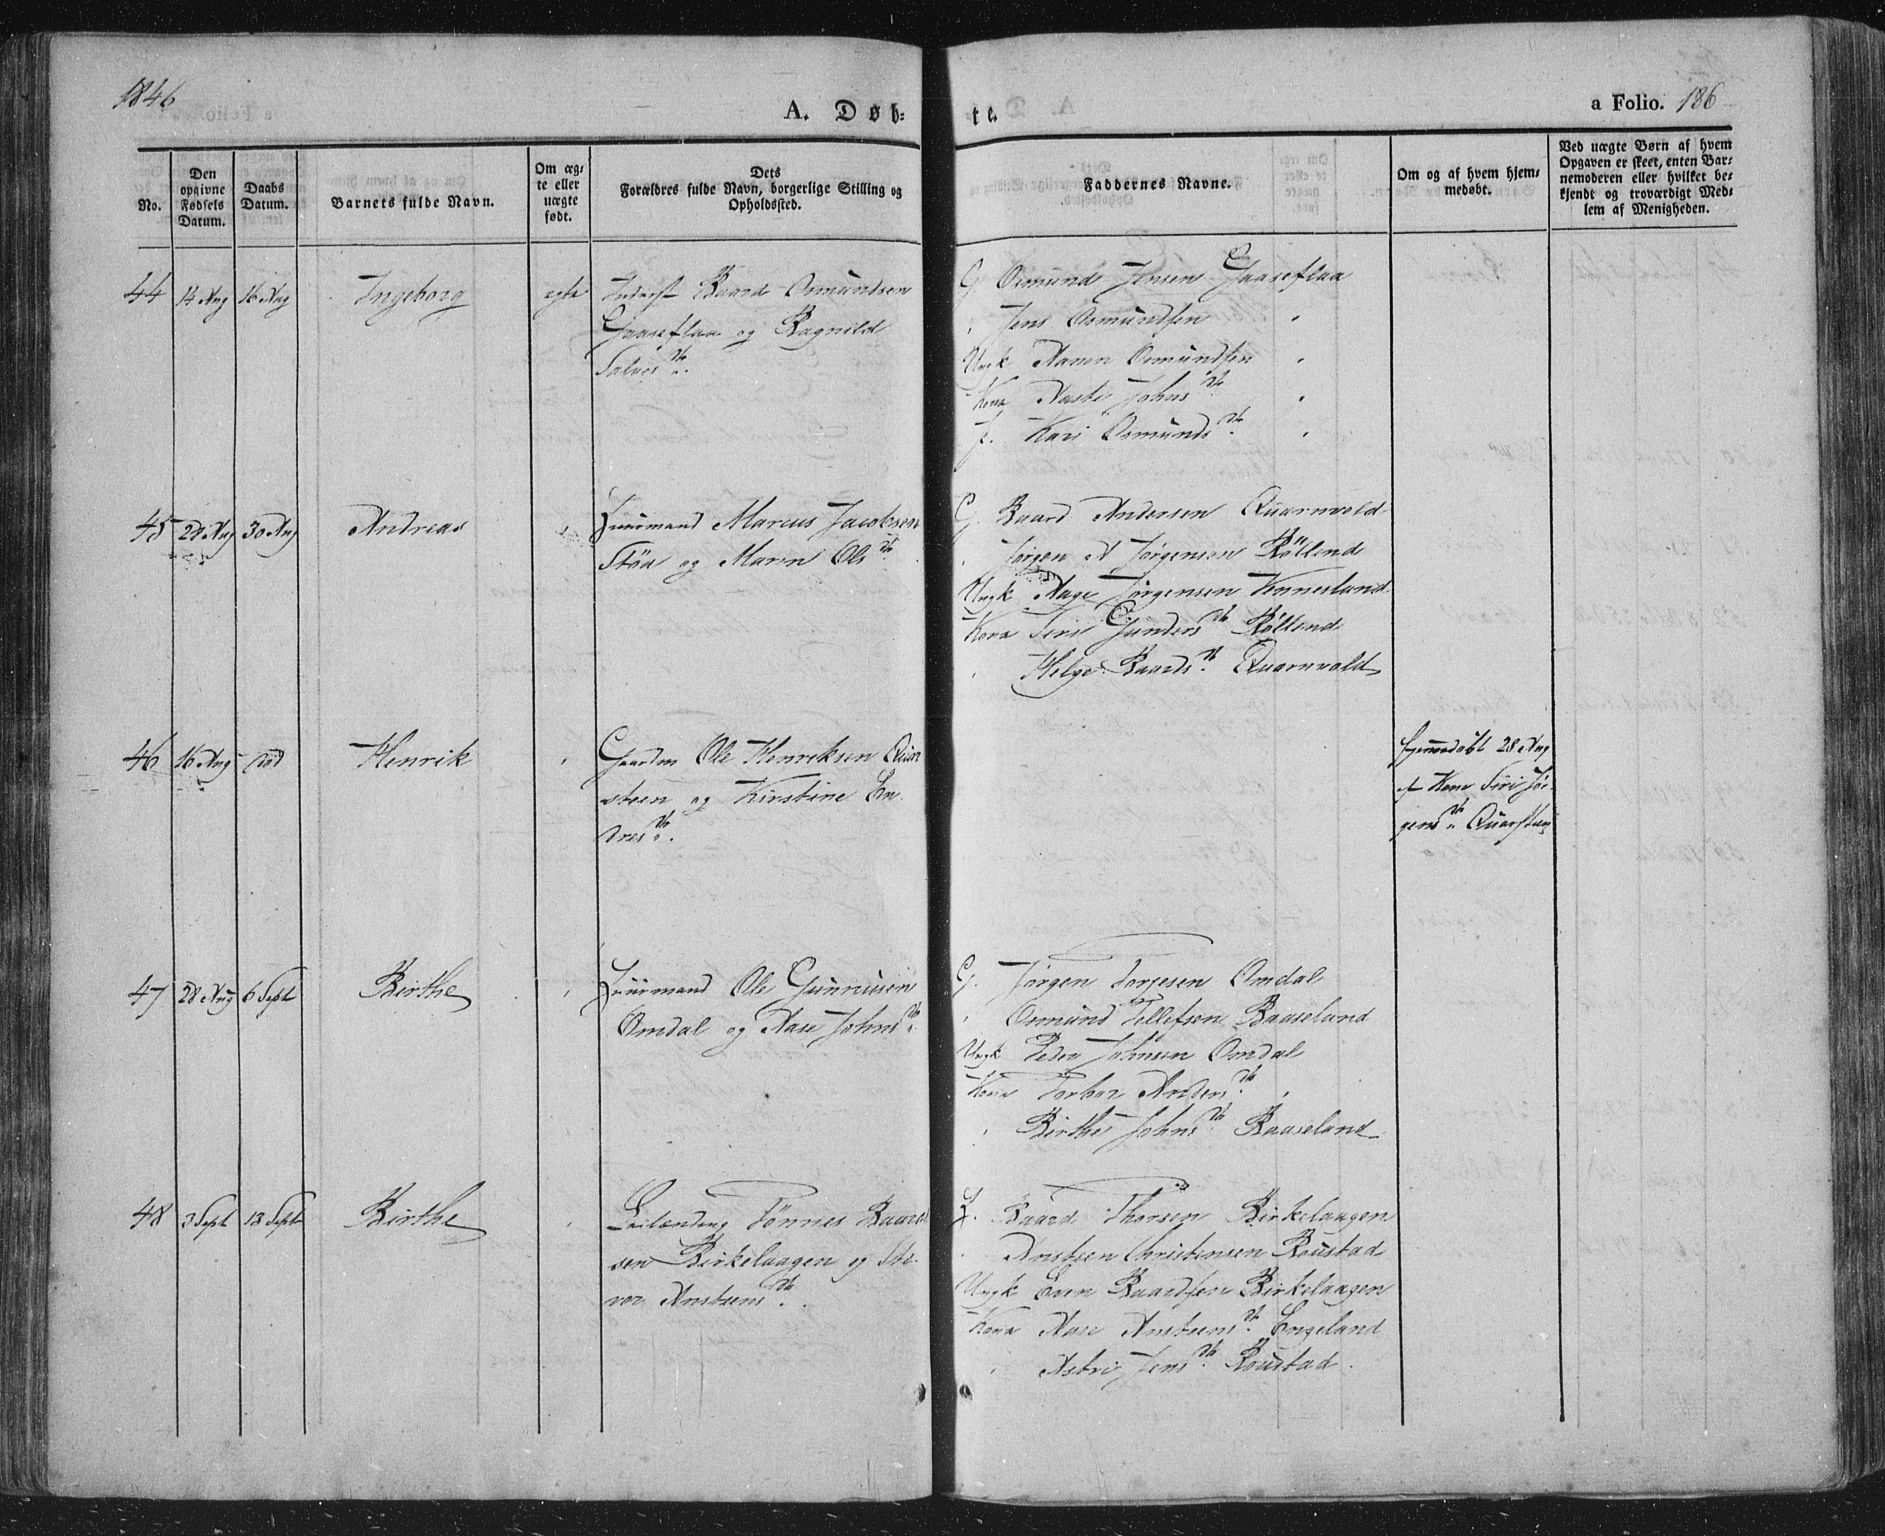 1846
A. Døb-
te.
a Folio. 186
No.
Den opgivne Fødsels Datum.
Daabs Datum.
Barnets fulde Navn.
Om ægte eller uægte født.
Dets Forældres fulde Navn, borgerlige Stilling og Opholdssted.
Faddernes Navne.
Om og af hvem hjemmedøbt.
Ved uægte Børn af hvem Opgaven er skeet, enten Barnemoderen eller hvilket bekjendt og troværdigt Medlem af Menigheden.
44 14 Aug 16 Aug Ingeborg ægte Inderst Baard Osmundsen
Gaaseflaa og Ragnild
Salves Dr.
G Osmund Jensen Gaaseflaa
" Jens Osmundsen "
Ungk Aanen Osmundsen "
Kona Aaste Johns Dr "
P. Kari Osmunds Dr. "
45 20 Aug 30 Aug Andreas " Huusmand Marcus Jacobsen
Støa og Maren Ols Dr
G. Baard Andersen Quarnvold
" Jørgen A Jørgensen Røllend
Ungk Aage Jørgensen Kenneslund
Kona Siri Gunders Dr Røllend
" Helge Baards Dr. Quarnvold
46 16 Aug død Henrik " Gaardm Ole Henriksen Quar
steen og Kirstine En
dres Dr.
hjemmedøbt 28 Aug
af Kona Siri Jør
gens Dr Quarsteen
47 28 Aug 6 Sept Birthe " Huusmand Ole Gunnusen
Omdal og Aase Johns Dr
G. Jørgen Torjesen Omdal
" Osmund Tellefsen Baaseland
Ungk Peder Johnsen Omdal
Kona Torbor Anders Dr. "
" Birthe Johns Dr Baaseland
48 3 Sept 13 Sept Birthe " Leilænding Tønnes Baard
sen Birkelaagen og Tor
vor Anstens Dr.
L. Baard Thorsen Birkelaagen
" Ansteen Christensen Roustad
Ungk Even Baardsen Birkelaagen
Kona Aase Anstens Dr. Engeland
" Astri Jens Dr. Roustad.